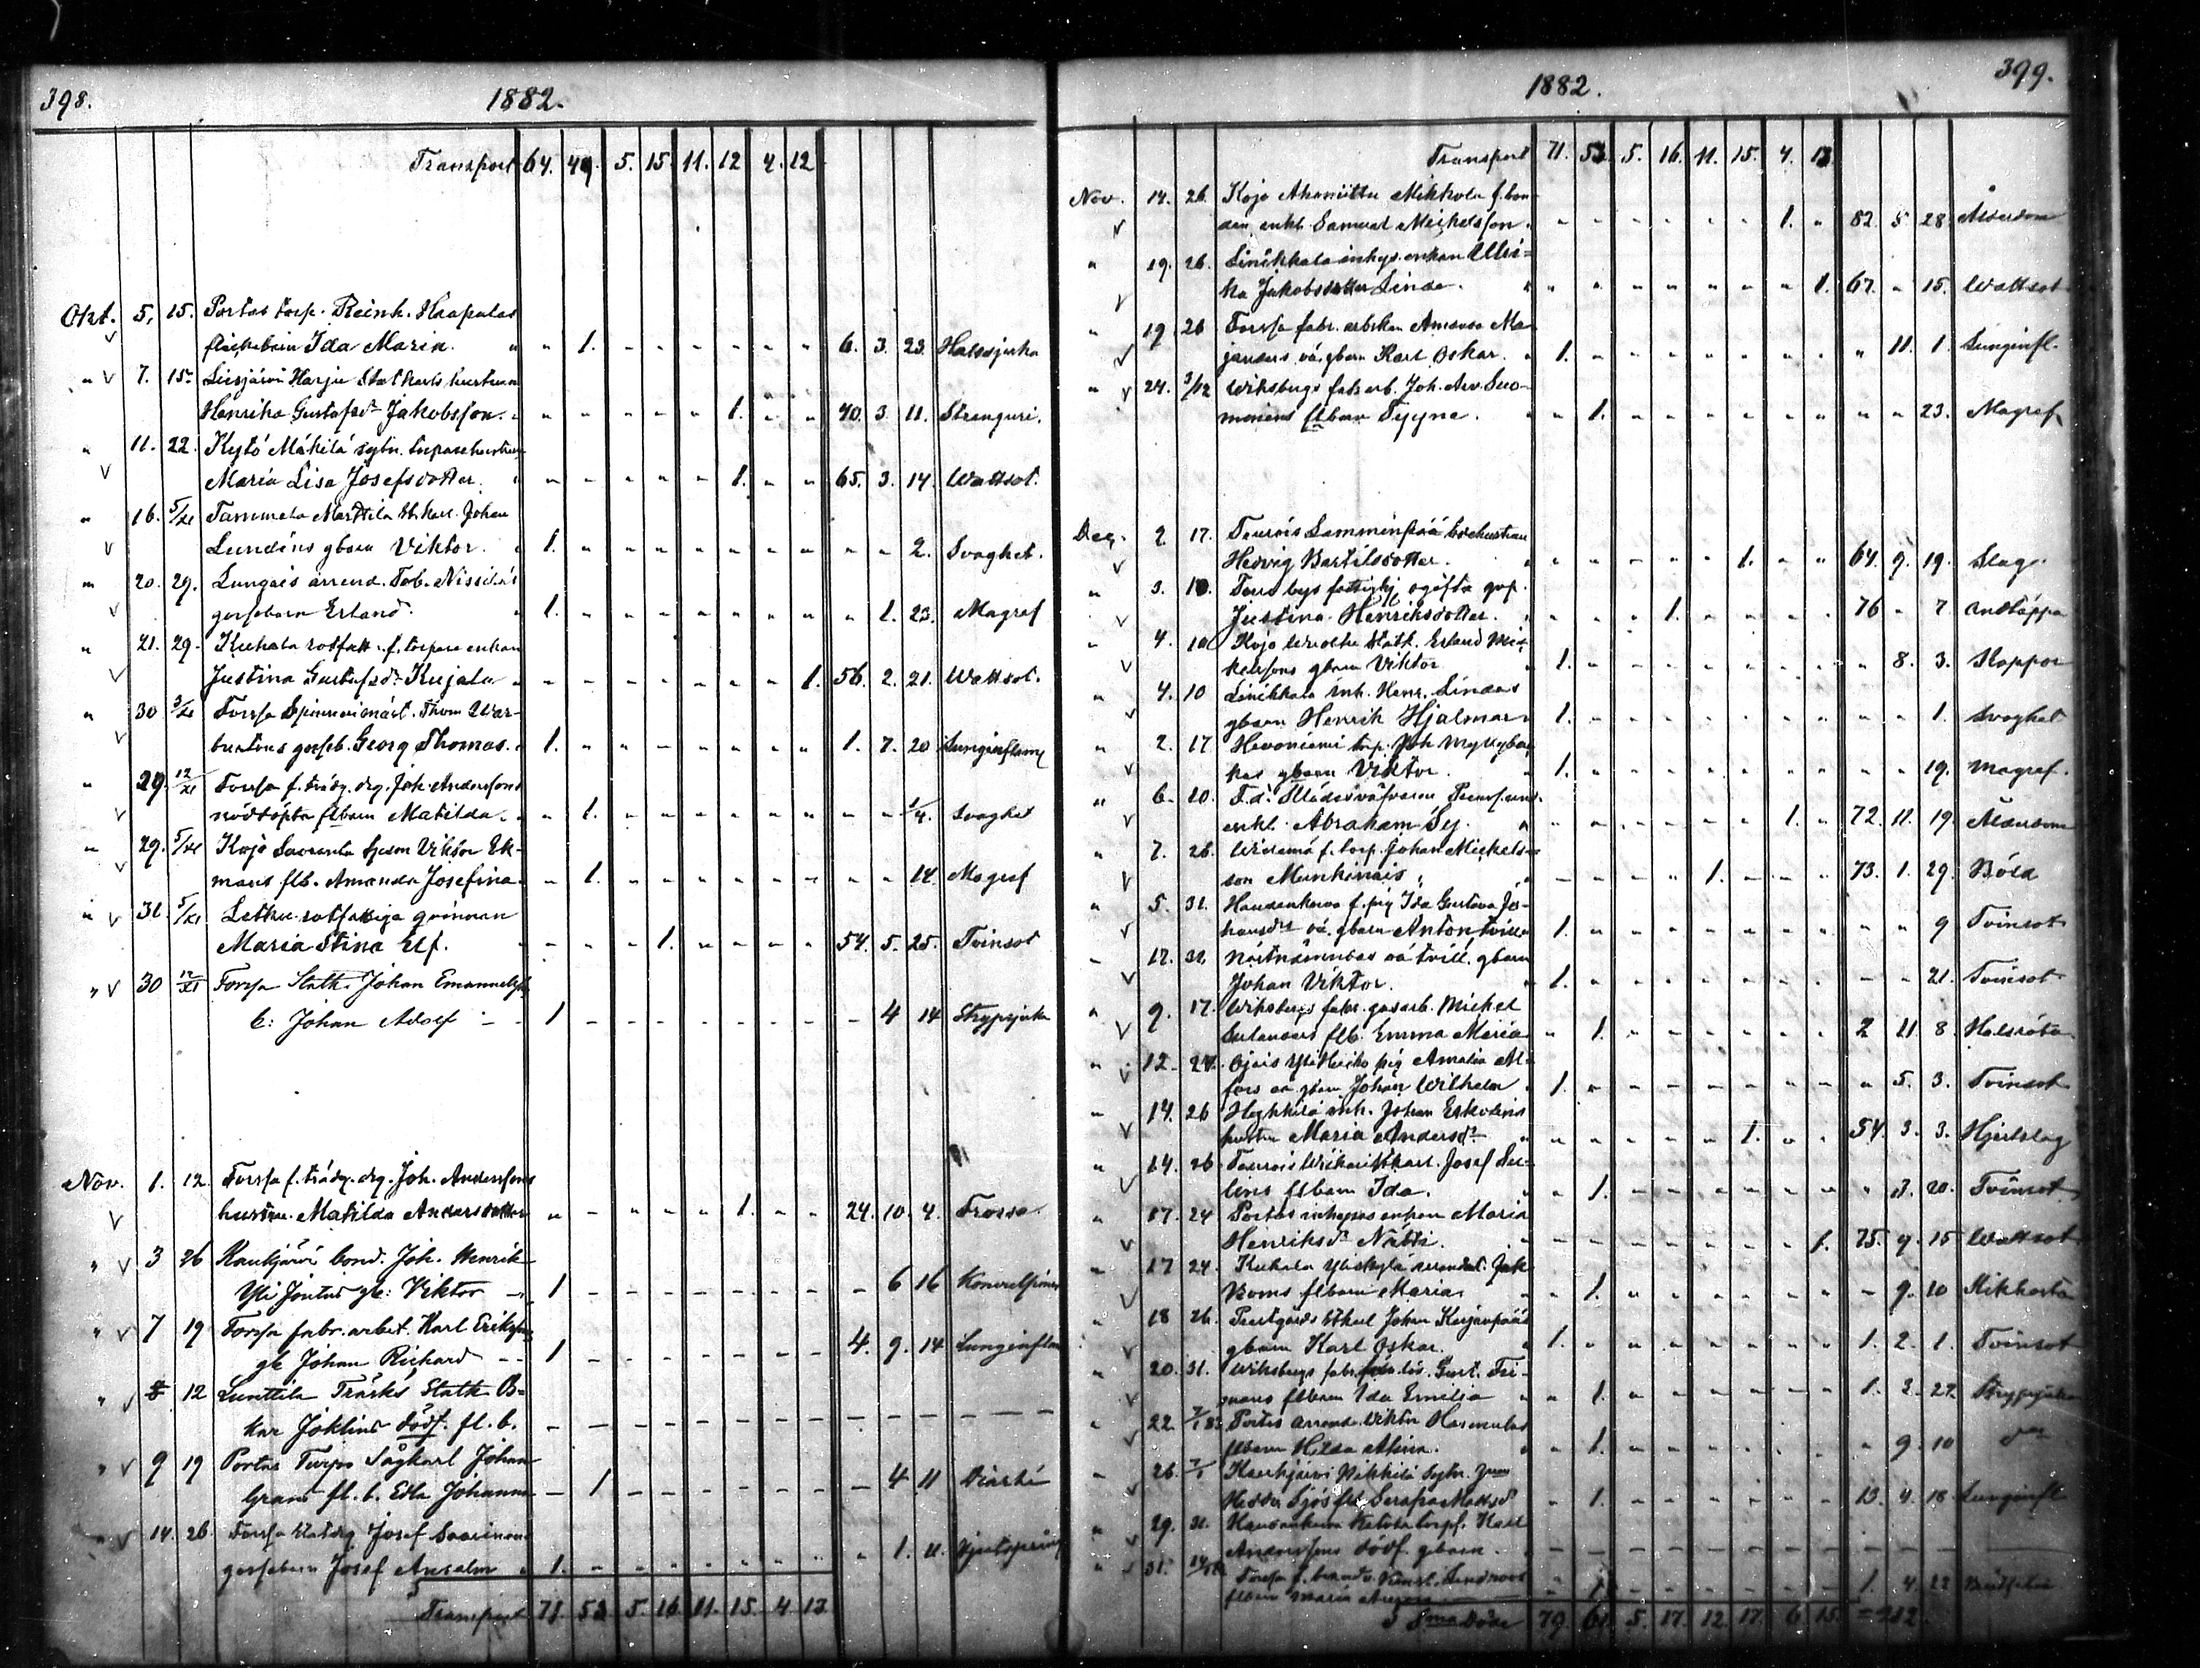 398.
1882.
Transport 64. 49. 5. 15. 11. 12 4. 12
Okt. 5. 15. Portas torp. Reinh. Haapalas
flickebarn Ida Maria. " " 1. - - - - - - 6. 3. 23. Halssjuka
" 7. 15. Liesjärvi Harju Statkarls hustrun
Henrika Gustafsd. Jakobsson. - - - - - 1. - - 40. 3. 11. Stranguri.
" 11. 22. Kytö Mäkilä sytn. torparehustrun
Maria Lisa Josefsdotter. - - - - - 1. - - 65. 3. 14. Wattsot.
" 16. 5/XI Tammela Marttila st.karl. Johan
Lundéns gbarn Viktor. 1. - - - - - - - - - 2. Svaghet.
" 20. 29. Lungais arrend. Tob. Nissiläs
gossebarn Erland. 1. - - - - - - - - 1. 23. Magref
" 21. 29. Kuhala rotfatt. f. torpare enkan
Justina Gustafsd. Kujala - - - - - - - 1. 56. 2. 21. Wattsot.
" 30 5/XI Forssa Spinnerimäst. Thom War-
burtons gosseb. Georg Thomas. 1. - - - - - - - 1. 7. 20 Lunginflam
" 29. 12/XI Forssa f. trädg. drg. Joh. Anderssons
nöddöpta flbarn Matilda. - 1. - - - - - - - - 1/4. Svaghet
" 29. 5/XI Kojo Viktor Ek-
mans flb. Amanda Josefina. - 1. - - - - - - - - 14 Magref
" 31. 5/XI Letku rotfattiga qvinnan
Maria Stina Elf. - - - 1. - - - - 54. 5. 25. Tvinsot
" 30 12/XI Forssa Statk. Johan Emanuelss
b: Johan Adolf - - 1 - - - - - - - - 4 14 Strypsjuka
Nov. 1. 12 Forssa f. trädg. drg. Joh. Anderssons
hustru. Matilda Andersdotter - - - - - 1. - - 24. 10. 4. Frossa.
" 3 26 Kaukjärvi bond. Joh. Henrik
Yli Jontus gb: Viktor - 1 - - - - - - - - 6 16 Konvulsioner
" 7 19 Forssa fabr. arbet. Karl Erikss
gb Johan Richard - - 1 - - - - - - - 4. 9. 14 Lunginflam
" 8 12 Lunttila Träsks Statk. O-
kar Joklins dödf. fl. b. - - - - - - - - - - -
" 9 19 Portas Turpo Sågkarl Johan
Grans fl. b. Edla Johanna - 1 - - - - - - - 4 11
" 14. 26. Forssa Josef Saarinens
gossebarn Josef Anselm 1. - - - - - - - - 1. 11.
Transport 71. 53. 5. 16. 11. 15. 4. 13.
399.
1882.
Transport 71. 53. 5. 16. 11. 15. 4. 13.
Nov. 14. 26. Kojo Ahoniittu Mikkola f. bon-
den enkl. Samuel Mickelsson. - - - - - - 1. - 82. 5. 28. Ålderdom
" 19. 26. Linikkala inhys. enkan Ulri-
ka Jakobsdotter Linda. - - - - - - - 1. 67. - 15. Wattsot
" 19 26 Forssa fabr. arbskan Amanda Ma-
janders oä. gbarn Karl Oskar. 1. - - - - - - - - 11. 1. Lunginfl.
" 24. 3/12 Wiksbergs fab. arb. Joh. Arv. Suo-
minens flbarn Tyyne. - 1. - - - - - - - - 23. Magref
Dec. 2 17. Taurois Lamminpää
Hedvig Bertilsdotter. - - - - - 1. - - 64. 9. 19. Slag.
" 3. 10. bys fattighj. ogifta qvp.
Justina Henriksdotter. - - - 1. - - - - 76 - 7 Andtäppa
" 4. 10 Kojo Statk. Erland Mic-
kelssons gbarn Viktor 1. - - - - - - - - 8. 3. Koppor
" 4. 10 Linikkala inh. Henr. Lindas
gbarn Henrik Hjalmar 1. - - - - - - - - - 1. Svaghet
" 2. 17 Hevoniemi torp. Joh
kas gbarn Viktor. 1. - - - - - - - - - 19. Magref.
" 6. 10. F.d.
enkl. Abraham Sy. - - - - - - 1. - 72. 11. 19. Ålderdom
" 7. 26. f. torp. Johan Mickels-
son Munkinais. - - - - 1. - - - 73. 1. 29. Böld
" 5. 31. f. pig Ida Gustava Jo-
hansdr oä. gbarn Anton tvill. 1. - - - - - - - - - 9 Tvinsot
" 12. 31. Nästnämndas oä tvill. gbarn
Johan Viktor. 1. - - - - - - - - - 21. Tvinsot
" 9. 17. Wiksbergs fabr. gasarb. Mickel
Erlanders flb. Emma Maria - 1. - - - - - - 2 11 8. Halsröta
" 12. 24. Ojais pig Amalia Al-
fors oä gbarn Johan Wilhelm 1. - - - - - - - - 5. 3. Tvinsot
" 14. 26 Häkkilä inh. Johan Eskolins
hustru Maria Andersdr - - - - - 1. - - 54. 3. 3. Hjertslag
" 14. 26 Taurois st.karl. Josef Su-
lins flbarn Ida. - 1. - - - - - - - 3. 20. Tvinsot
" 17. 24 Portas inhyses enkan Maria
Henriksdr Näbbi. - - - - - - - 1. 75. 9. 15 Wattsot
" 17 24. Kuhala Ylikylä arrendat. Jak
Roms flbarn Maria. - 1. - - - - - - - 9. 10 Kikhosta
" 18 26. st.karl Johan Kujanpääs
gbarn Karl Oskar. 1. - - - - - - - 1. 2. 1. Tvinsot
" 20. 31. Wiksbergs Gust. Fri-
mans flbarn Ida Emilia - 1. - - - - - - 1. 2. 22. Strypsjuka
" 22 7/1 83 Portas arrend. Viktor Harmulas
flbarn Hilda Alina. - 1. - - - - - - - 9. 10
" 26. 7/1 Kaukjärvi Pikkilä
- 1. - - - - - - 13. 4. 18 Lunginfl.
" 29. 31. torpf. Karl
Anderssons dödf. gbarn. - - - - - - - - - - -
" 31. 14/1 Forssa
flbarn Maria - 1. - - - - - - 1. 4. 22
Döde 79. 61. 5. 17. 12. 17. 6. 15. = 212.